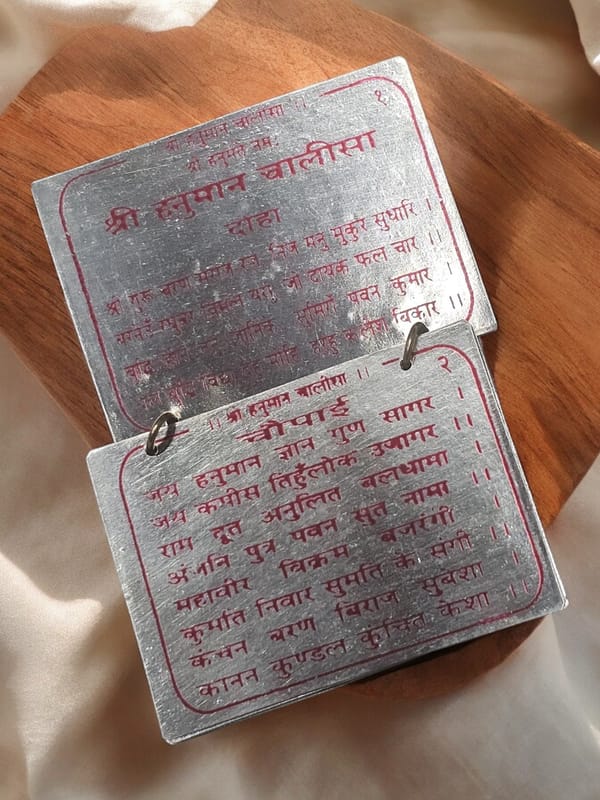 श्री हनुमान चालीसा ।।
१
श्री हनुमते नमः
श्री हनुमान चालीसा
दोहा
श्री गुरू चरण सरोज रज निज मनु मुकुर सुधारि ।
जो दायक फल चार ।।
पवन कुमार ।
बिकार ।।
।। श्री हनुमान चालीसा ।।
२
चौपाई
जय हनुमान ज्ञान गुण सागर ।
जय कपीस तिहुँलोक उजागर ।।
राम दूत अतुलित बलधामा ।
अंजनि पुत्र पवन सुत नामा ।।
महावीर विक्रम बजरंगी ।
कुमति निवार सुमति के संगी ।।
कंचन बरण बिराज सुबेशा ।
कानन कुण्डल कुंचित केशा ।।